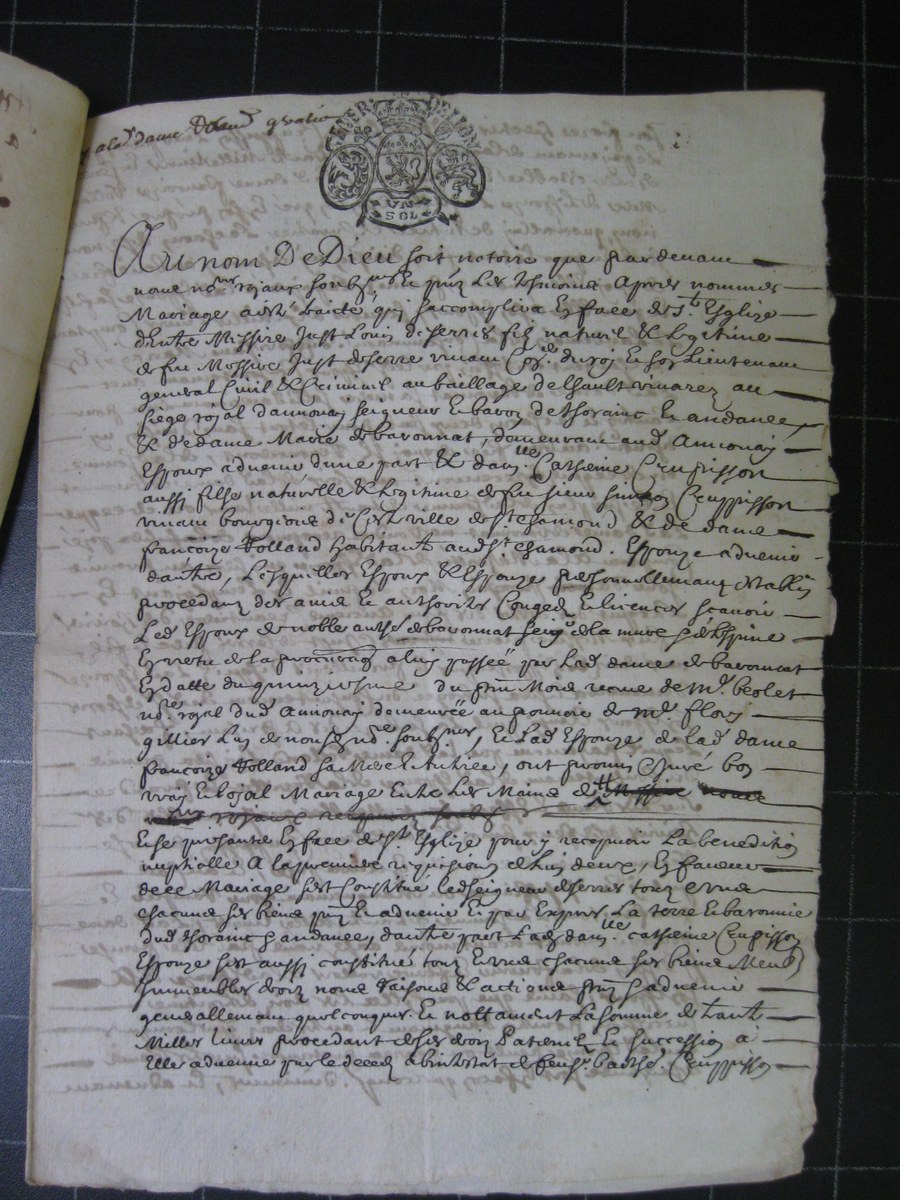 a la d. dame
GENER DE LYON
VN
SOL
Au nom De Dieu soit notoire que pardevant
nous no.res royaux soubz.nes Et p.nt Les tesmoins Apres nommes
Mariage a esté traicté quy saccomplira En face de S.te Esglize
dEntre Messire Just Louis de serres filz naturel & Legitime
de feu Messire Just de serre vivant Con.er du roy En son Lieutenant
general Civil & Criminel au baillage de hault vivarez au
siege royal dannonay seigneur & baron de thorainc Et andance
& de dame Marie de baronnat, demeurant aud. Annonay
Espoux advenir dune part & dam.lle Catherine Cruppisson
aussi fille naturelle & Legitime de feu sieur simon Cruppisson
vivant bourgeois de Cest ville de St chamond & de dame
francoize Dolland habitant aud. St chamond. Espouze advenir
dautre, Lesquelles Espoux & Espouze personnellemant establis
procedant des advis Et authorités Congez & licences scavoir
Led. Espoux de noble de baronnat seig.r de la mure
En vertu de la procuraon a luy passée par Lad. dame de baronnat
En datte du quinziesme du p.nt Mois receue de M.e beolet
no.re royal dud. Annonay demeurée au pouvoir de M.e flory
gillier Lun de nousd. no.res soubz.nes, Et Lad. Espouze de lad. dame
francoize Dolland sa Mere Et Autres, ont promis & juré bon
vray Et loyal Mariage Entre Les Mains de
royaux
Et se presanter En face de S.te Esglize pour y recepvoir La benediction
nuptialle A la premiere requisition de Lun deux, En faveur
de ce Mariage sest Constitué led. seigneur de serres tous & uns
chacuns ses biens p.nt Et advenir Et par Expres La terre Et baronnie
dud. thorainc & andance, dautre part Lad. dam.lle catherine Cruppisson
Espouze sest aussi constitués tous & uns chacuns ses biens Meubles
Immeubles droitz noms raisons & actions p.nt & advenir
generallemant quelconques Et nottament La somme de trante
Milles Livres procedant de ses droitz Paternelz Et succession a
Elle advenue par le deces abintestat de feu s.r Cruppisson